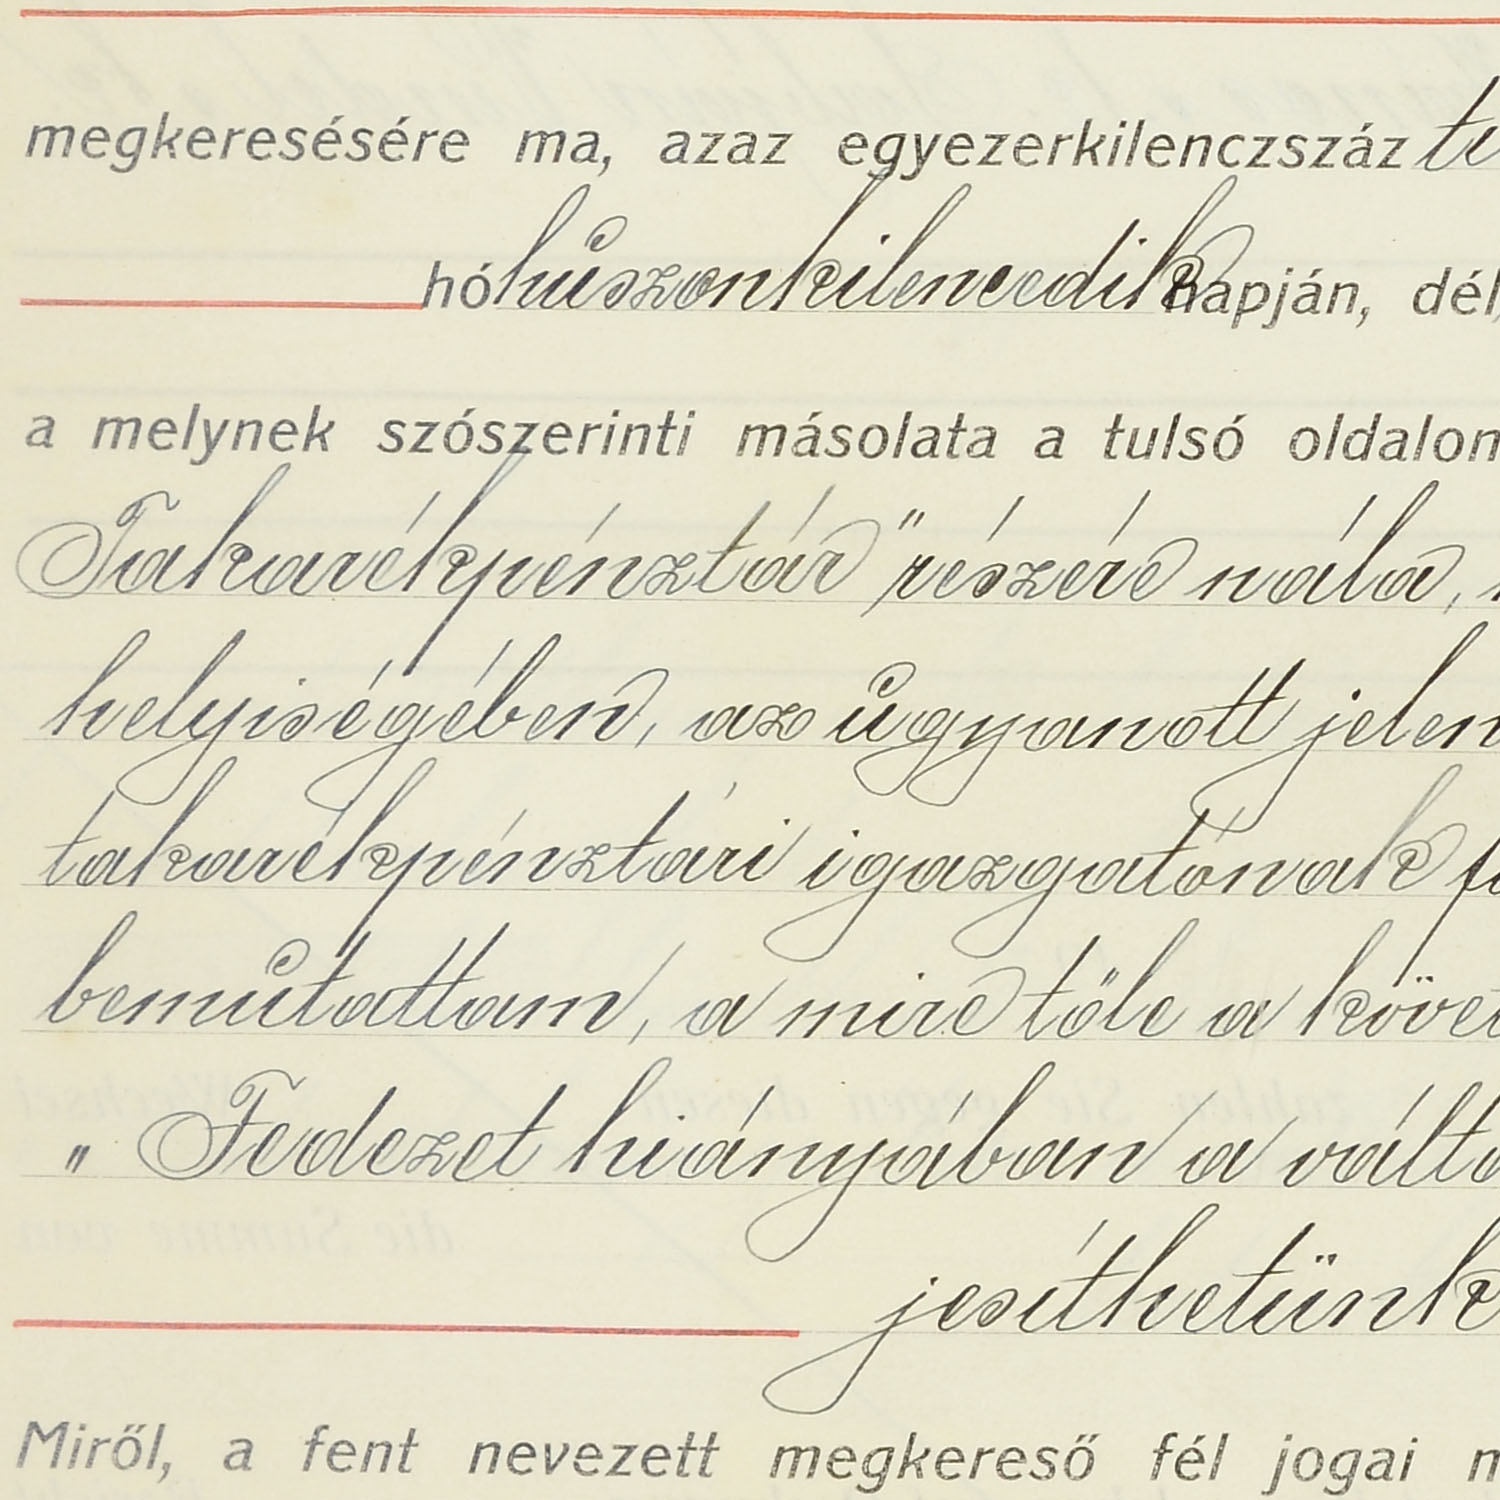 megkeresésére ma, azaz egyezerkilenczszáz
hó húszonkilencedik napján, dél
a melynek szószerinti másolata a tulsó oldalon
Takarékpénztár" részére nála,
helyiségében, az ugyanott jelen
takarékpénztári igazgatónak
bemutattam, a mire tőle a követ
„ Fedezet hiányában a váltó
jesíthetünk
Miről, a fent nevezett megkereső fél jogai